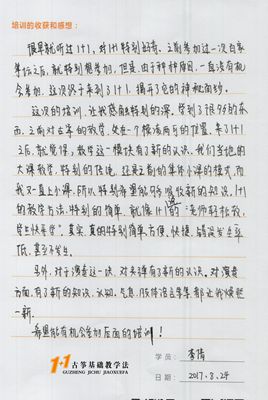 培训的收获和感想：
很早就听过1+1，对1+1特别好奇。之前参加过一次百家
筝坛之后，就特别想参加，但是，由于种种原因，一直没有机
会参加，这次终于来到了1+1，揭开了它的神秘面纱。
这次的培训，让我感触特别的深，学到了很多的东
西，之前对古筝的教学，处在一个模凌两可的位置，来了1+1
之后，就觉得，教学这一模块有了新的认识，我们当地的
大课教学，特别的传统，还是之前的集体小课的模式，而
我又一直上小课，所以特别希望能够吸收新的知识，1+1
的教学方法，特别的简单，就像1+1的"老师轻松教，
学生快乐学"，真实、真的特别简单、方便、快捷，错误发生率
低，甚至不发生。
另外，对于演奏这一块，对
有了新的认识，对演奏
方面，有了新的知识、认知，气息、肢体语言等等都让我焕然
一新。
希望能有机会参加后面的培训！
1+1 古筝基础教学法
GUZHENG JICHU JIAOXUEFA
学员：李倩
日期：2017.8.24